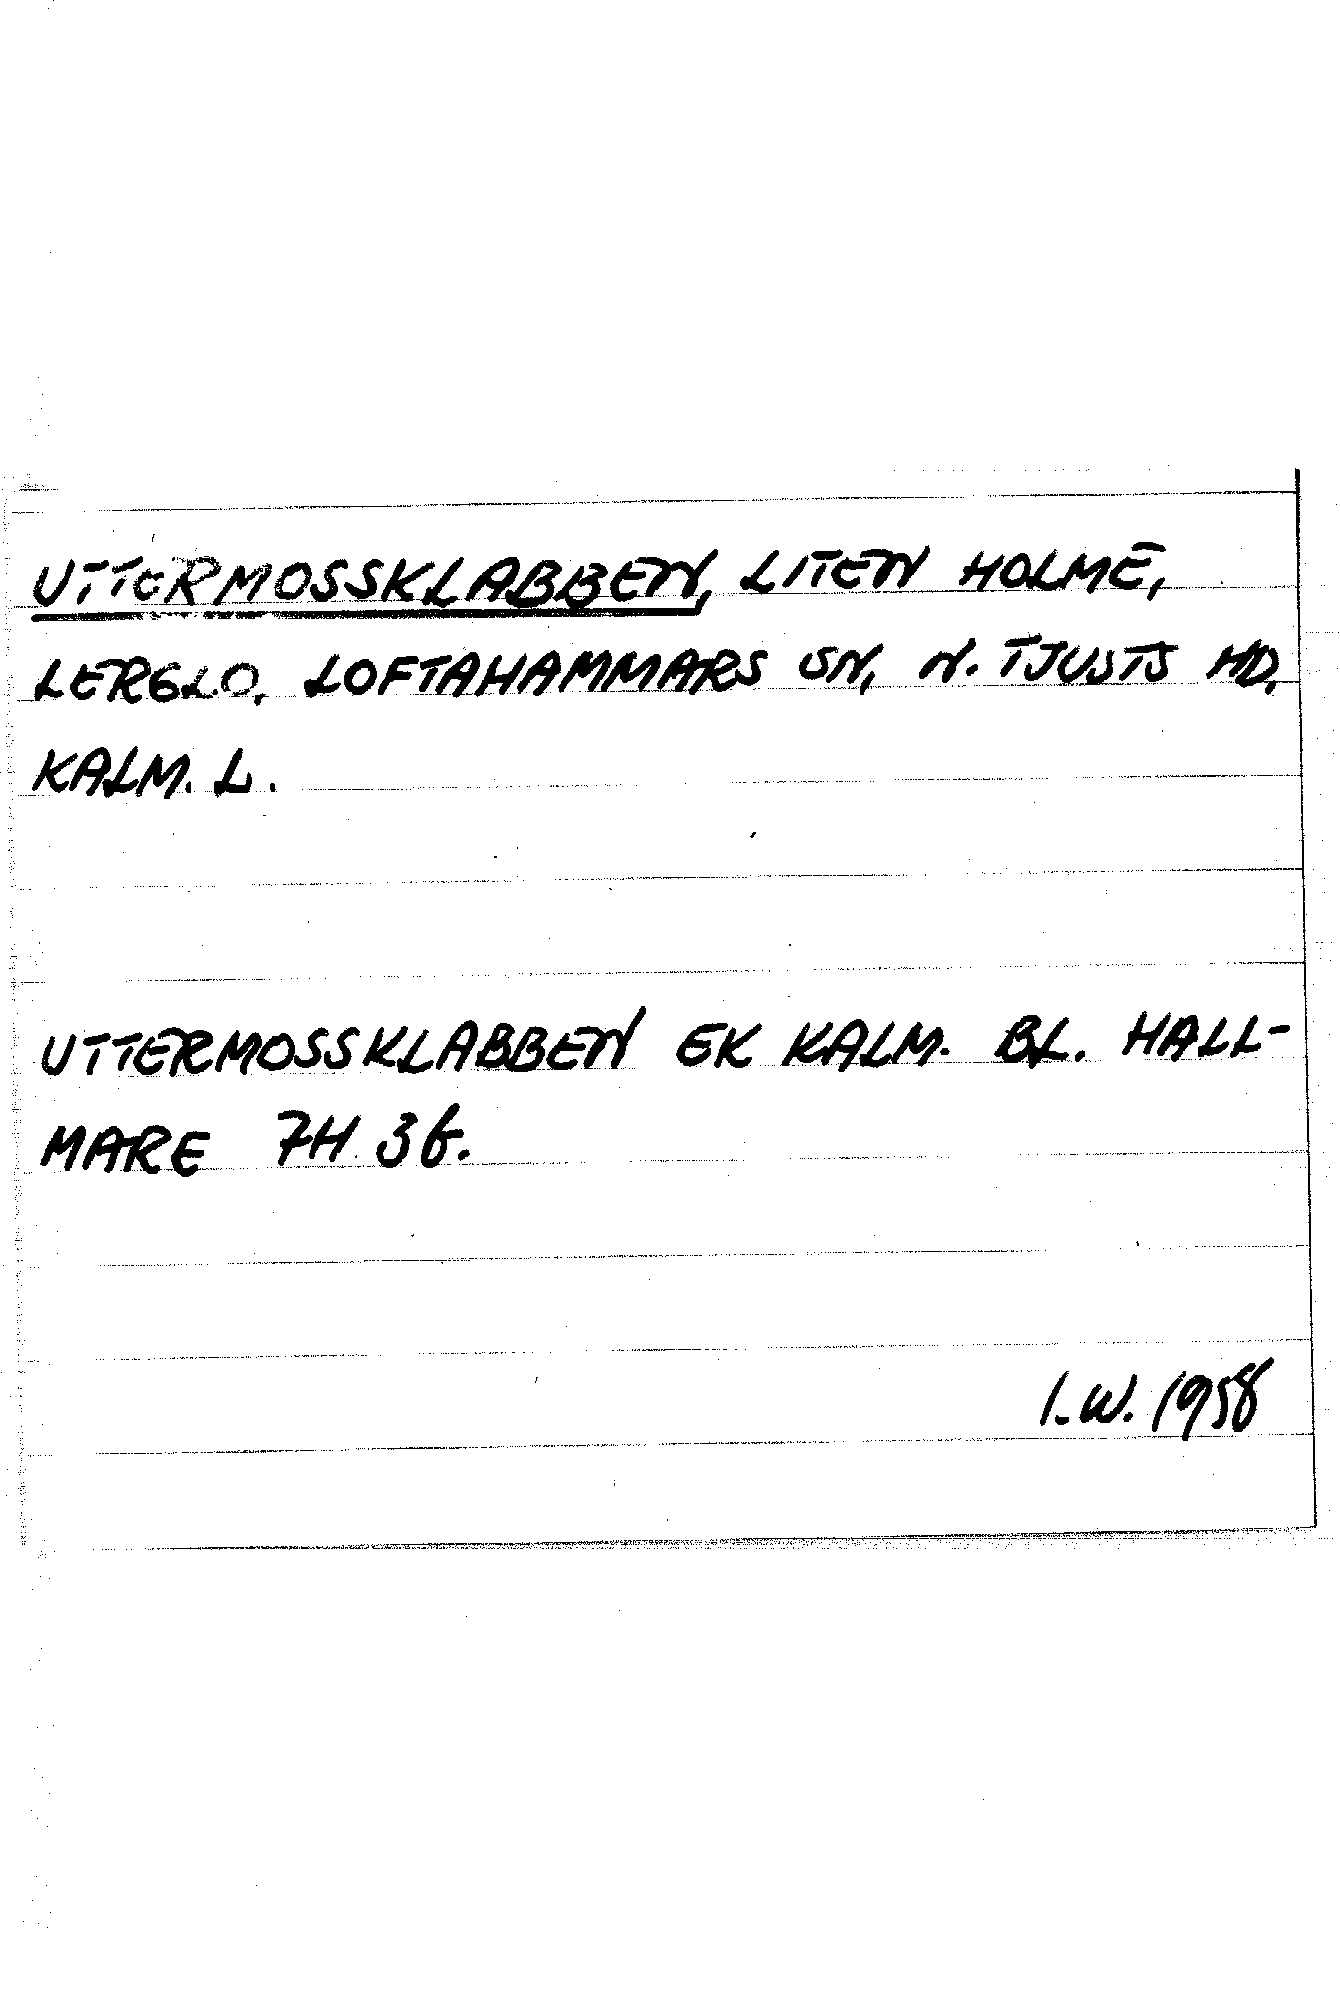 UTTERMOSSKLABBEN, LITEN HOLME,
LERGLO, LOFTAHAMMARS SN, N. TJUSTS HD,
KALM. L.
UTTERMOSSKLABBEN EK KALM. BL. HALL-
MARE 7H 3b.
I.W. 1958